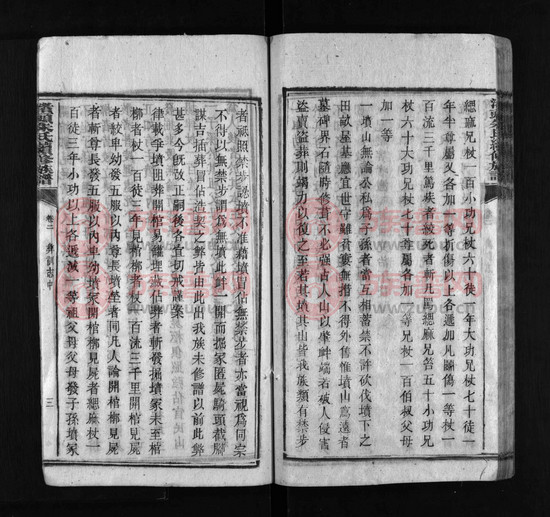 緦麻兄杖一百小功兄杖六十徒一年大功兄杖七十徒一
年半尊屬又各加一等折傷以上各遞加凡鬭傷一等杖一
百流三千里篤疾者絞死者斬凡罵緦麻兄笞五十小功兄
杖六十大功兄杖七十尊屬各加一等兄杖一百伯叔父母
加一等
一墳山無論公私為子孫者當互相蓄禁不許砍伐墳下之
田畝屋基應宜世守雖貧窶無措不得外售惟墳山為遠者
墓碑界石隨時修葺不必強占人山以肇衅端若被人侵害
盜賣盜葬則竭力以復之至若其墳其山皆我族類有禁步
者祗照禁步認墳不准藉墳冒佔無禁步者亦當視為同宗
不得以無禁步謂為無衅一開而掘冢匿屍騎頭截脚
謀吉插葬冒佔造契之弊皆由此出我族未修譜以前此弊
甚多今既改正嗣後各宜切戒謹案
律載平墳盜葬開棺易罐埋藏佔葬者斬發掘墳冢未至棺
槨者杖一百徒三年見棺槨者杖一百流三千里開棺槨見屍
者絞卑幼發五服以內尊長墳塋者同凡人論開棺槨見屍
者斬尊長發五服以內卑幼墳冢開棺槨見屍者緦麻杖一
百徒三年小功以上各遞減一等祖父母父母發子孫墳冢
卷二
三